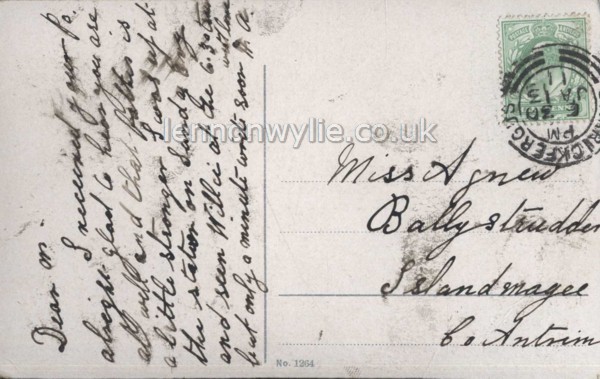 Dear M.
I received your P.C.
alright glad to hear you are
all well and that Father is
a little stronger I was up at
the station on Sunday
and seen Willie at the 6.30
but only a minute write soon A.
Miss Agnew
Ballystrudder
Islandmagee
Co Antrim
CARRICKFERGUS
6 30 PM
JA 13
11
No. 1264
jlennonwylie.co.uk